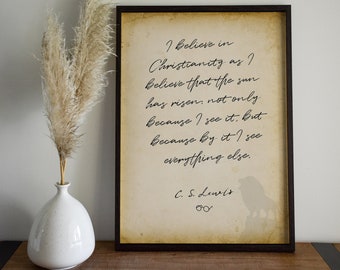 I believe in
Christianity as I
believe that the sun
has risen, not only
because I see it, but
because by it I see
everything else.
C. S. Lewis